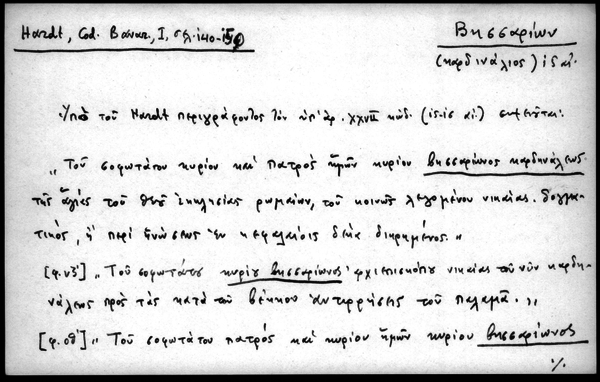 Hardt, Cod. Bavar., I, σελ. 140-
Βησσαρίων
(καρδινάλιος) ιε αἰ.
Ὑπὸ τοῦ Hardt περιγράφοντος τὸν ὑπ' ἀρ. XXVII κώδ. (ιε-ις αἰ.) σημειοῦται:
"Τοῦ σοφωτάτου κυρίου καὶ πατρὸς ἡμῶν κυρίου βησσαρίωνος καρδηνάλεως
τῆς ἁγίας τοῦ θεοῦ ἐκκλησίας ρωμαίων, τοῦ κοινῶς λεγομένου νικαίας. δογμα-
τικὸς, ἢ περὶ ἑνώσεως ἐν κεφαλαίοις δέκα διηρημένος."
[φ. νξ'] "Τοῦ σοφωτάτου κυρίου βησσαρίωνος ἀρχιεπισκόπου νικαίας τοῦ νῦν καρδη-
νάλεως πρὸς τὰς κατὰ τοῦ βέκκου ἀντιρρήσεις τοῦ παλαμᾶ."
[φ. οθ'] "Τοῦ σοφωτάτου πατρὸς καὶ κυρίου ἡμῶν κυρίου βησσαρίωνος
./.